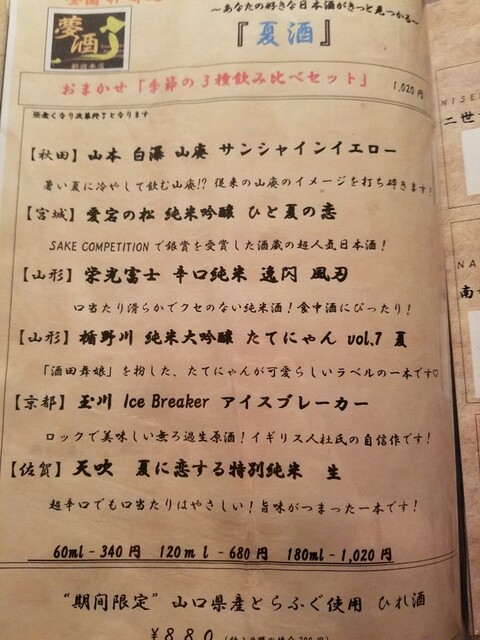 ～あなたの好きな日本酒がきっと見つかる～
夢酒
『夏酒』
おまかせ「季節の3種飲み比べセット」 1,020円
※無くなり次第終了となります
【秋田】山本 白瀑 山廃 サンシャインイエロー
暑い夏に冷やして飲む山廃!? 従来の山廃のイメージを打ち砕きます！
【宮城】愛宕の松 純米吟醸 ひと夏の恋
SAKE COMPETITIONで銀賞を受賞した酒蔵の超人気日本酒！
【山形】栄光冨士 辛口純米 逸閃 風刃
口当たり滑らかでクセのない純米酒！食中酒にぴったり！
【山形】楯野川 純米大吟醸 たてにゃん vol.7 夏
「酒田舞娘」を扮した、たてにゃんが可愛らしいラベルの一本です♡
【京都】玉川 Ice Breaker アイスブレーカー
ロックで美味しい無ろ過生原酒！イギリス人杜氏の自信作です！
【佐賀】天吹 夏に恋する特別純米 生
超辛口でも口当たりはやさしい！旨味がつまった一本です！
60ml－340円 120ml－680円 180ml－1,020円
“期間限定” 山口県産とらふぐ使用 ひれ酒
¥880
NISE
二世
NA
南